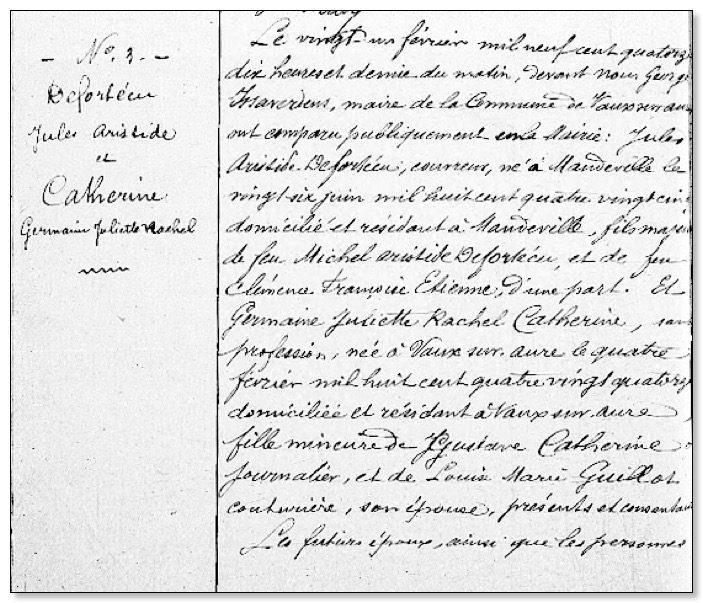 - N° 3. -
Defortécu
Jules Aristide
et
Catherine
Germaine Juliette Rachel
Le vingt-un février mil neuf cent quatorze
dix heures et demie du matin, devant nous Georg
Issaverdens, maire de la Commune de Vaux sur aure
ont comparu publiquement en la Mairie: Jules
Aristide Defortécu, couvreur, né à Mandeville le
vingt six juin mil huit cent quatre vingt cinq
domicilié et résidant à Mandeville, fils majeur
de feu Michel Aristide Defortécu, et de feu
Clémence Françoise Etienne, d'une part. Et
Germaine Juliette Rachel Catherine, sans
profession, née à Vaux sur aure le quatre
février mil huit cent quatre vingt quatorze
domiciliée et résidant à Vaux sur aure,
fille mineure de Gustave Catherine
journalier, et de Louise Marie Guillot
couturière, son épouse, présents et consentant
Les futurs époux, ainsi que les personnes